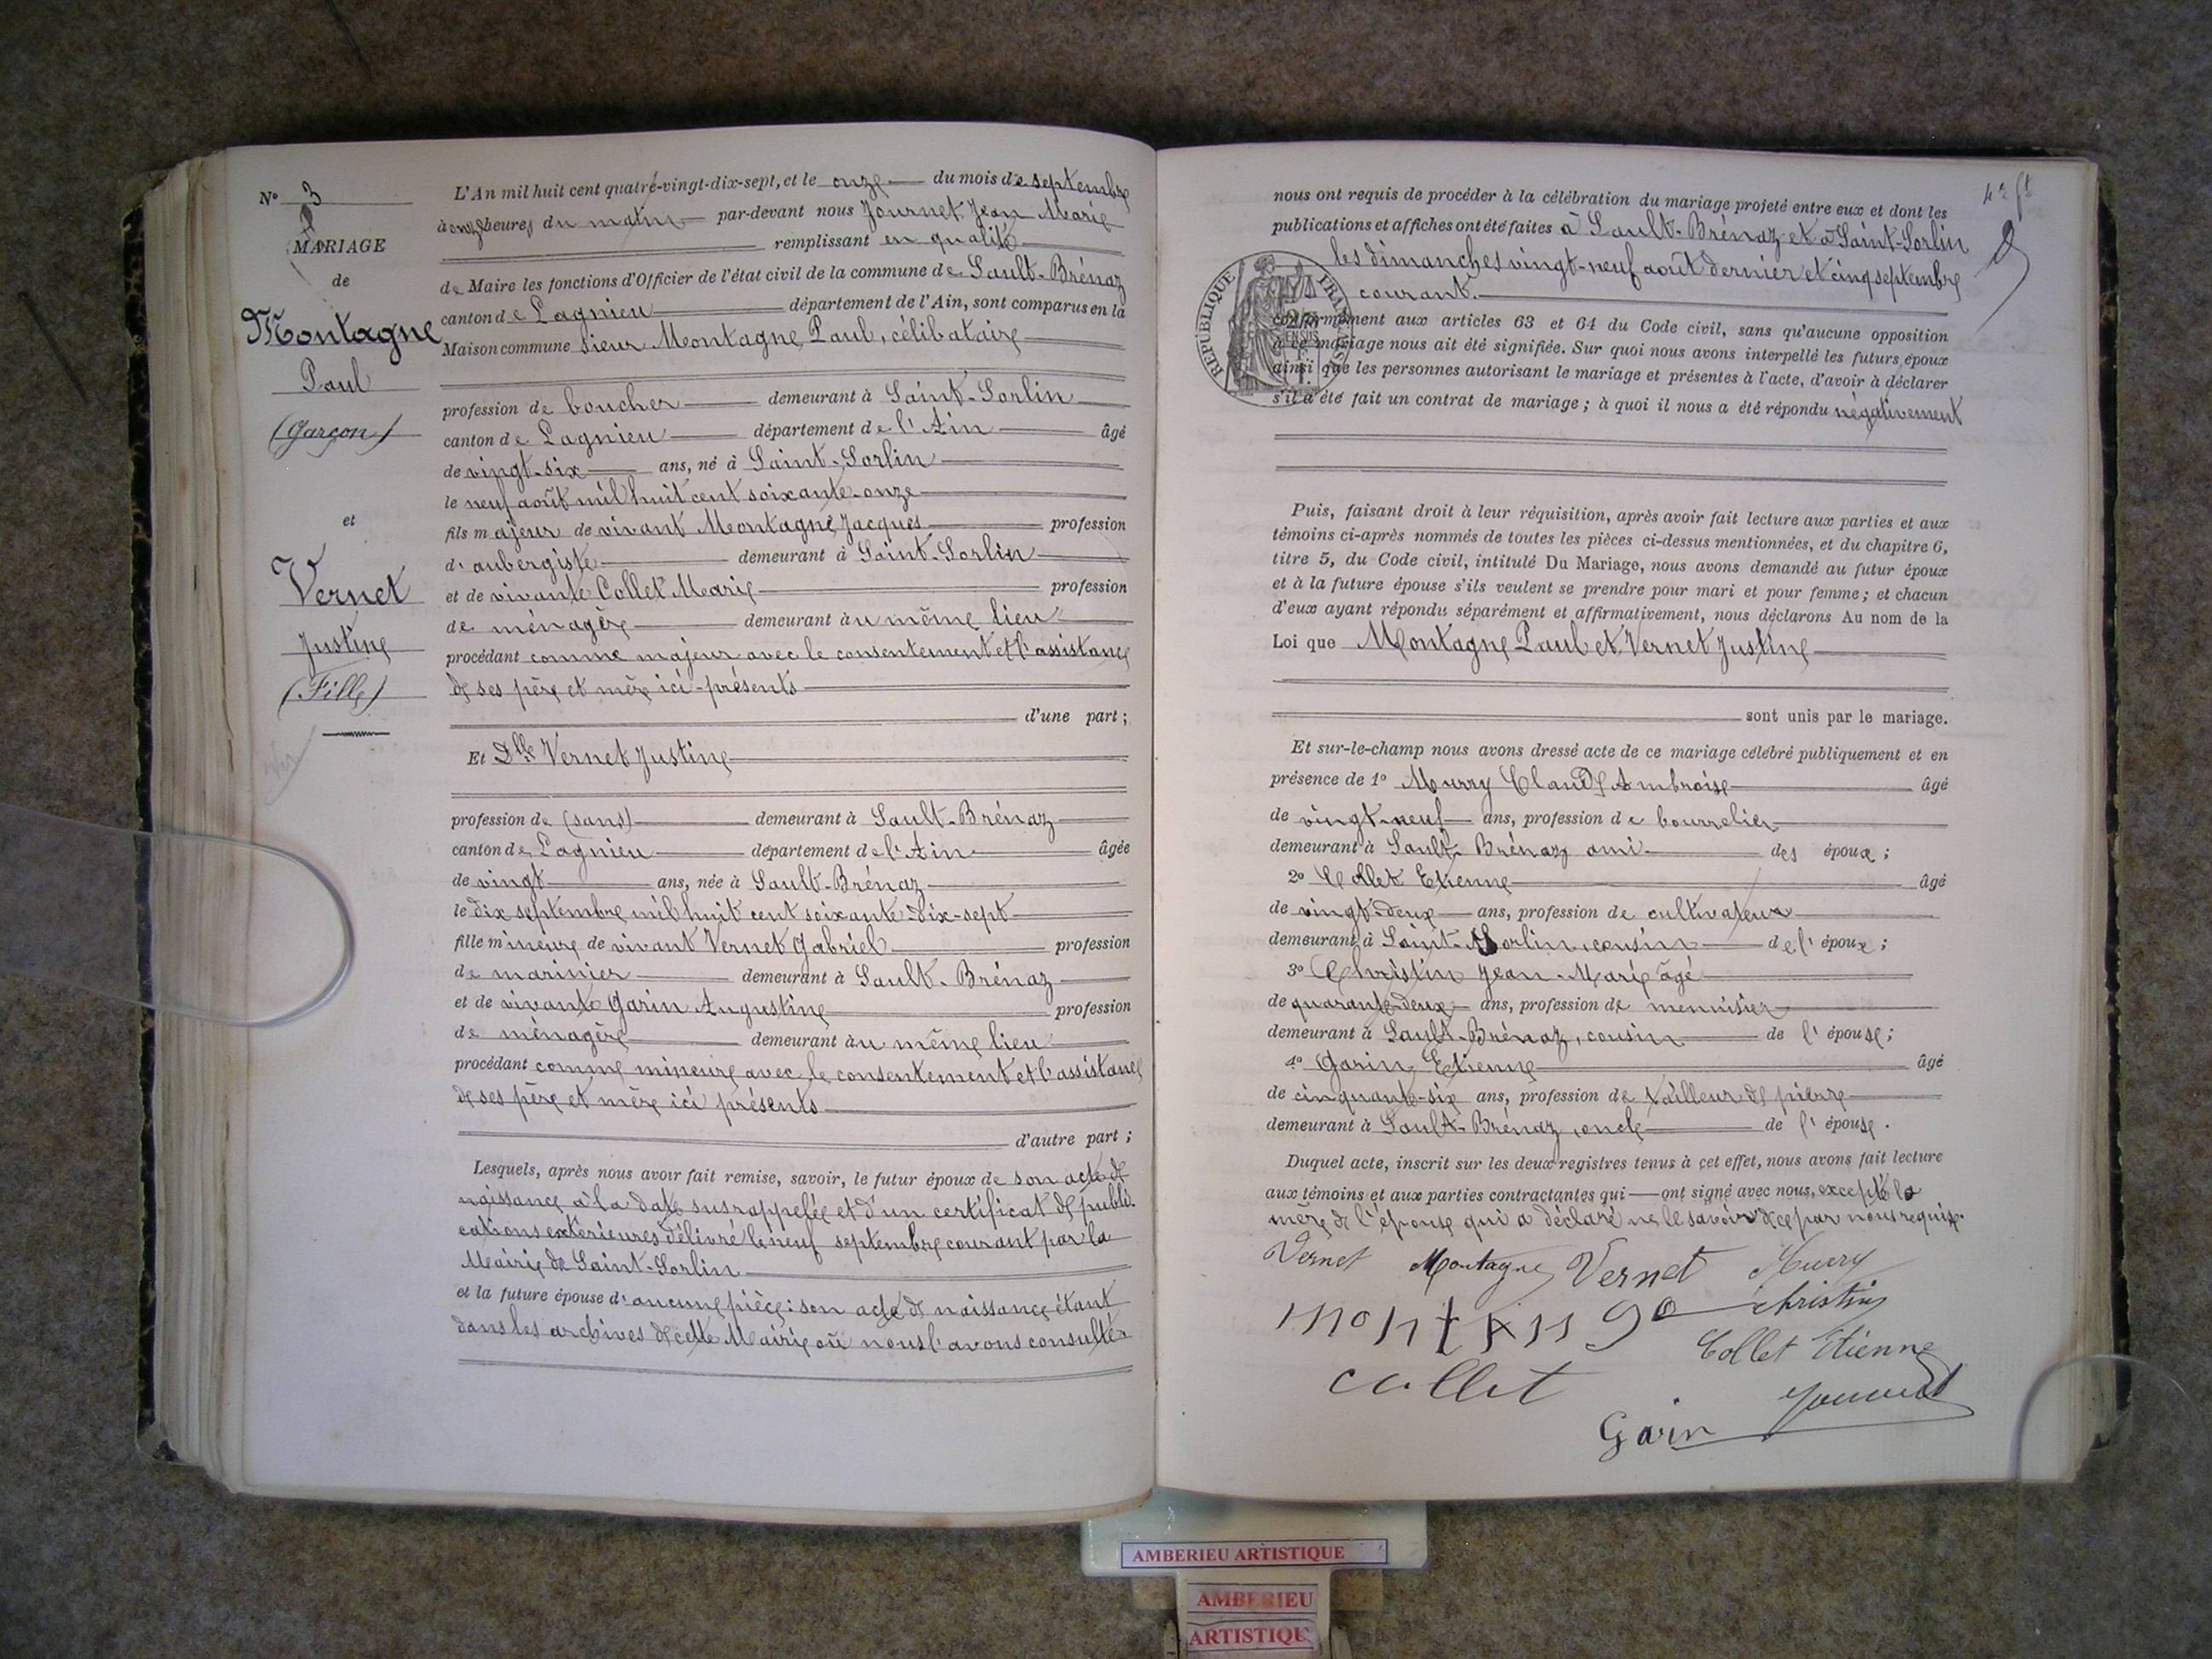 N° 3
MARIAGE
de
Montagne
Paul
(Garçon)
et
Vernet
Justine
(Fille)
L'An mil huit cent quatre-vingt-dix-sept, et le onze du mois de septembre
à onze heures du matin par-devant nous Journet Jean Marie
remplissant en qualité
de Maire les fonctions d'Officier de l'état civil de la commune de Sault-Brénaz
canton de Lagnieu département de l'Ain, sont comparus en la
Maison commune sieur Montagne Paul, célibataire
profession de boucher demeurant à Saint-Sorlin
canton de Lagnieu département de l'Ain âgé
de vingt-six ans, né à Saint-Sorlin
le neuf août mil huit cent soixante-onze
fils majeur de vivant Montagne Jacques profession
d'aubergiste demeurant à Saint-Sorlin
et de vivante Collet Marie profession
de ménagère demeurant au même lieu
procédant comme majeur avec le consentement et l'assistance
de ses père et mère ici-présents
d'une part ;
Et Dlle Vernet Justine
profession de (sans) demeurant à Sault-Brénaz
canton de Lagnieu département de l'Ain âgée
de vingt ans, née à Sault-Brénaz
le dix septembre mil huit cent soixante-dix-sept
fille mineure de vivant Vernet Gabriel profession
de marinier demeurant à Sault-Brénaz
et de vivante Garin Augustine profession
de ménagère demeurant au même lieu
procédant comme mineure avec le consentement et l'assistance
de ses père et mère ici présents
d'autre part ;
Lesquels, après nous avoir fait remise, savoir, le futur époux de son acte de
naissance à la date susrappelée et d'un certificat de publi-
cations extérieures délivré le neuf septembre courant par la
Mairie de Saint-Sorlin
et la future épouse d'aucune pièce : son acte de naissance étant
dans les archives de cette Mairie où nous l'avons consulté
nous ont requis de procéder à la célébration du mariage projeté entre eux et dont les
publications et affiches ont été faites à Sault-Brénaz et à Saint-Sorlin
les dimanches vingt-neuf août dernier et cinq septembre
courant.
RÉPUBLIQUE FRANÇAISE
conformément aux articles 63 et 64 du Code civil, sans qu'aucune opposition
à ce mariage nous ait été signifiée. Sur quoi nous avons interpellé les futurs époux
ainsi que les personnes autorisant le mariage et présentes à l'acte, d'avoir à déclarer
s'il a été fait un contrat de mariage ; à quoi il nous a été répondu négativement
Puis, faisant droit à leur réquisition, après avoir fait lecture aux parties et aux
témoins ci-après nommés de toutes les pièces ci-dessus mentionnées, et du chapitre 6,
titre 5, du Code civil, intitulé Du Mariage, nous avons demandé au futur époux
et à la future épouse s'ils veulent se prendre pour mari et pour femme ; et chacun
d'eux ayant répondu séparément et affirmativement, nous déclarons Au nom de la
Loi que Montagne Paul et Vernet Justine
sont unis par le mariage.
Et sur-le-champ nous avons dressé acte de ce mariage célébré publiquement et en
présence de 1° Murry Claude Ambroise âgé
de vingt-neuf ans, profession de bourrelier
demeurant à Sault-Brénaz ami des époux ;
2° Collet Etienne âgé
de vingt-deux ans, profession de cultivateur
demeurant à Saint-Sorlin, cousin de l'époux ;
3° Christin Jean-Marie âgé
de quarante-deux ans, profession de menuisier
demeurant à Sault-Brénaz, cousin de l'épouse ;
4° Garin Etienne âgé
de cinquante-six ans, profession de tailleur de pierre
demeurant à Sault-Brénaz, oncle de l'épouse.
Duquel acte, inscrit sur les deux registres tenus à cet effet, nous avons fait lecture
aux témoins et aux parties contractantes qui ont signé avec nous, excepté la
mère de l'épouse qui a déclaré ne le savoir de ce par nous requise.
Vernet Montagne Vernet Murry
montange Christin
Collet Etienne
collet
Journet
Garin
AMBERIEU ARTISTIQUE
AMBERIEU
ARTISTIQUE